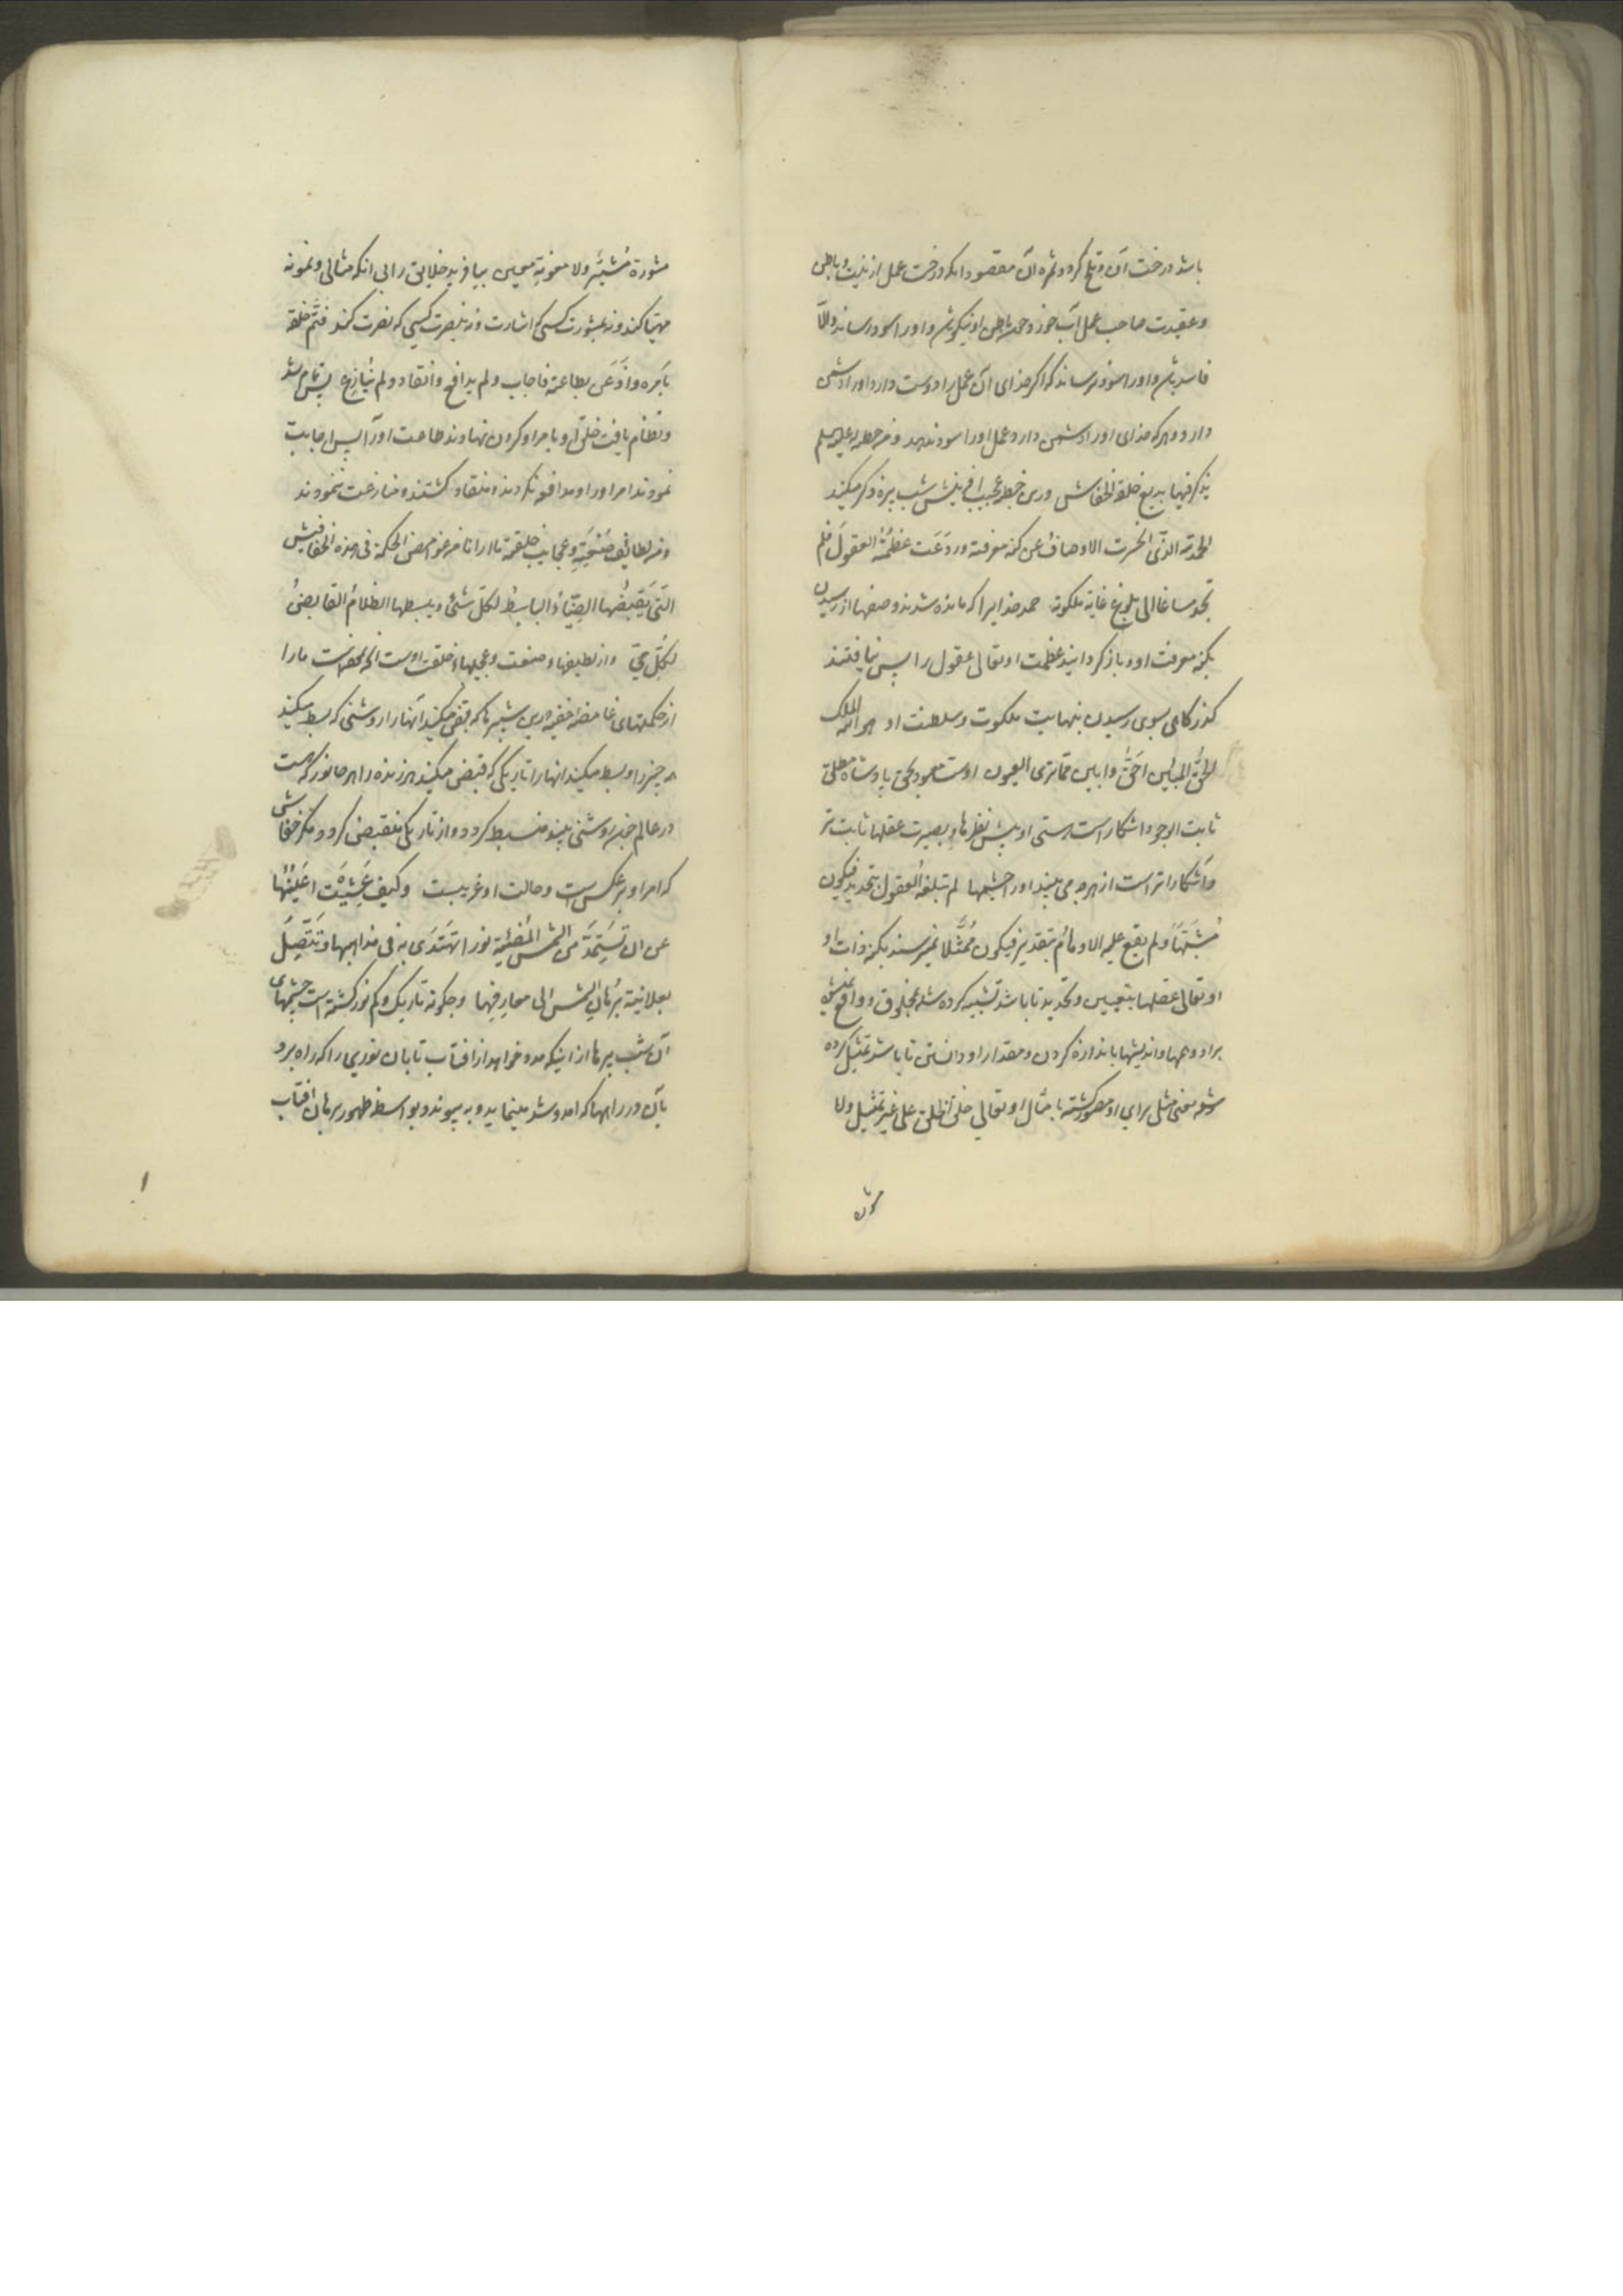 باشد درخت آن تلخ گردد و ثمره آن مقصود انکه درخت عمل از نیت و باطن
و عقیدت صاحب عمل آب خورد چه باطن او نیکو و او را سود رساند والا
فاسد باشد و او را سود نرساند که اگر خدای آن عمل را دوست دارد او را دشمن
دارد و هر که خدای او را دشمن دارد عمل او را سود ندهد و من خطبه له علیه السلم
یذکر فیها بدیع خلقة الخفاش درین خطبه عجیب افرینش شب پره ذکر میکند
الحمد لله الذی انحسرت الاوصاف عن کنه معرفته وردعت عظمته العقول فلم
تجد مساغا الی بلوغ غایة ملکوته حمد خدایرا که مانده شدند وصفها از رسیدن
بکنه معرفت او و باز گردانید عظمت او تعالی عقول را پس نیافتند
گذرگاهی بسوی رسیدن بنهایت ملکوت و سلطنت او هو الله الملک
الحق المبین احق وابین مما تری العیون اوست معبود بحق پادشاه مطلق
ثابت الوجود اشکار است هستی او پیش نظرها و بصیرت عقلها ثابت تر
و آشکاراتر است از هرچه می بینید او را چشمها لم تبلغه العقول بتحدید فیکون
مشبها ولم یقع علیه الاوهام بتقدیر فیکون ممثلا نمیرسند بکنه ذات او
او تعالی عقلها بتعیین و تحدید تا باشد تشبیه کرده شده بمخلوق و واقع نمیشود
براو وهمها و اندیشها باندازه کردن و مقدار او دانستن تا باشد تمثیل کرده
شده یعنی مثلی برای او مصور گشته با مثال او تعالی خلق الخلق علی غیر تمثیل ولا
مشورة
مشورة مشیر ولا معونة معین بیافرید خلایق را بی انکه مثالی و نمونه
مهیا کند و نه بمشورت کسی که اشارت و نه بنصرت کسی که نصرت کند فتم خلقه
بامره واذعن بطاعته فاجاب ولم یدافع وانقاد ولم ینازع پس تمام شد
و نظام یافت خلق او بامر او و گردن نهادند طاعت او را پس اجابت
نمودند امر او را و مدافعه نکردند و منقاد گشتند و منازعت ننمودند
ومن لطایف صنعته وعجایب خلقته ما ارانا من غوامض الحکمة فی هذه الخفافیش
التی یقبضها الضیاء الباسط لکل شئ ویبسطها الظلام القابض
لکل حی و از لطیفهاء صنعت و عجیبهاء خلقت اوست انچه نموده است ما را
از حکمتهای غامضه خفیه درین شب پرها که قبض میکند آنها را روشنی که بسط میکند
هر چیز را و بسط میکند انها را تاریکی که قبض میکند هر زنده را هر جانور که هست
در عالم چون روشنی بیند منبسط گردد و از تاریکی منقبض گردد مگر خفاش
که امر او بر عکس است و حالت او غریبست وکیف عشیت اعینها
عن ان تستمد من الشمس المضیئة نورا تهتدی به فی مذاهبها وتتصل
بعلانیة برهان الشمس الی معارفها و چگونه تاریک و کم نور گشته است چشمهای
آن شب پرها از اینکه مدد خواهد از افتاب تابان نوری را که راه برد
بآن در راهها که آمد و شد مینماید و به پیوندد بواسطه ظهور برهان افتاب